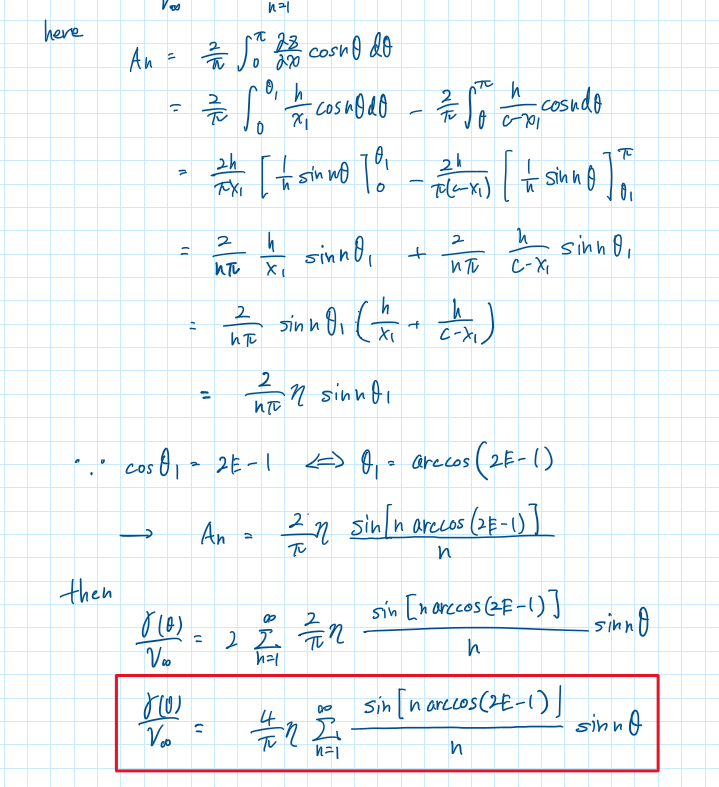 V∞ n=1
here
An = 2/π ∫₀^π ∂z/∂x cosnθ dθ
= 2/π ∫₀^θ₁ h/x₁ cosnθdθ − 2/π ∫_θ^π h/(c-x₁) cosndθ
= 2h/πx₁ [1/n sin nθ]₀^θ₁ − 2h/π(c-x₁) [1/n sin nθ]_θ₁^π
= 2/nπ h/x₁ sin nθ₁ + 2/nπ h/(c-x₁) sin nθ₁
= 2/nπ sin nθ₁ (h/x₁ + h/(c-x₁))
= 2/nπ η sin nθ₁
∵ cosθ₁ = 2E-1 ⟺ θ₁ = arccos(2E-1)
→ An = 2/π η sin[n arccos(2E-1)]/n
then
γ(θ)/V∞ = 2 ∑_{n=1}^∞ 2/π η sin[n arccos(2E-1)]/n sin nθ
γ(θ)/V∞ = 4/π η ∑_{n=1}^∞ sin[n arccos(2E-1)]/n sin nθ